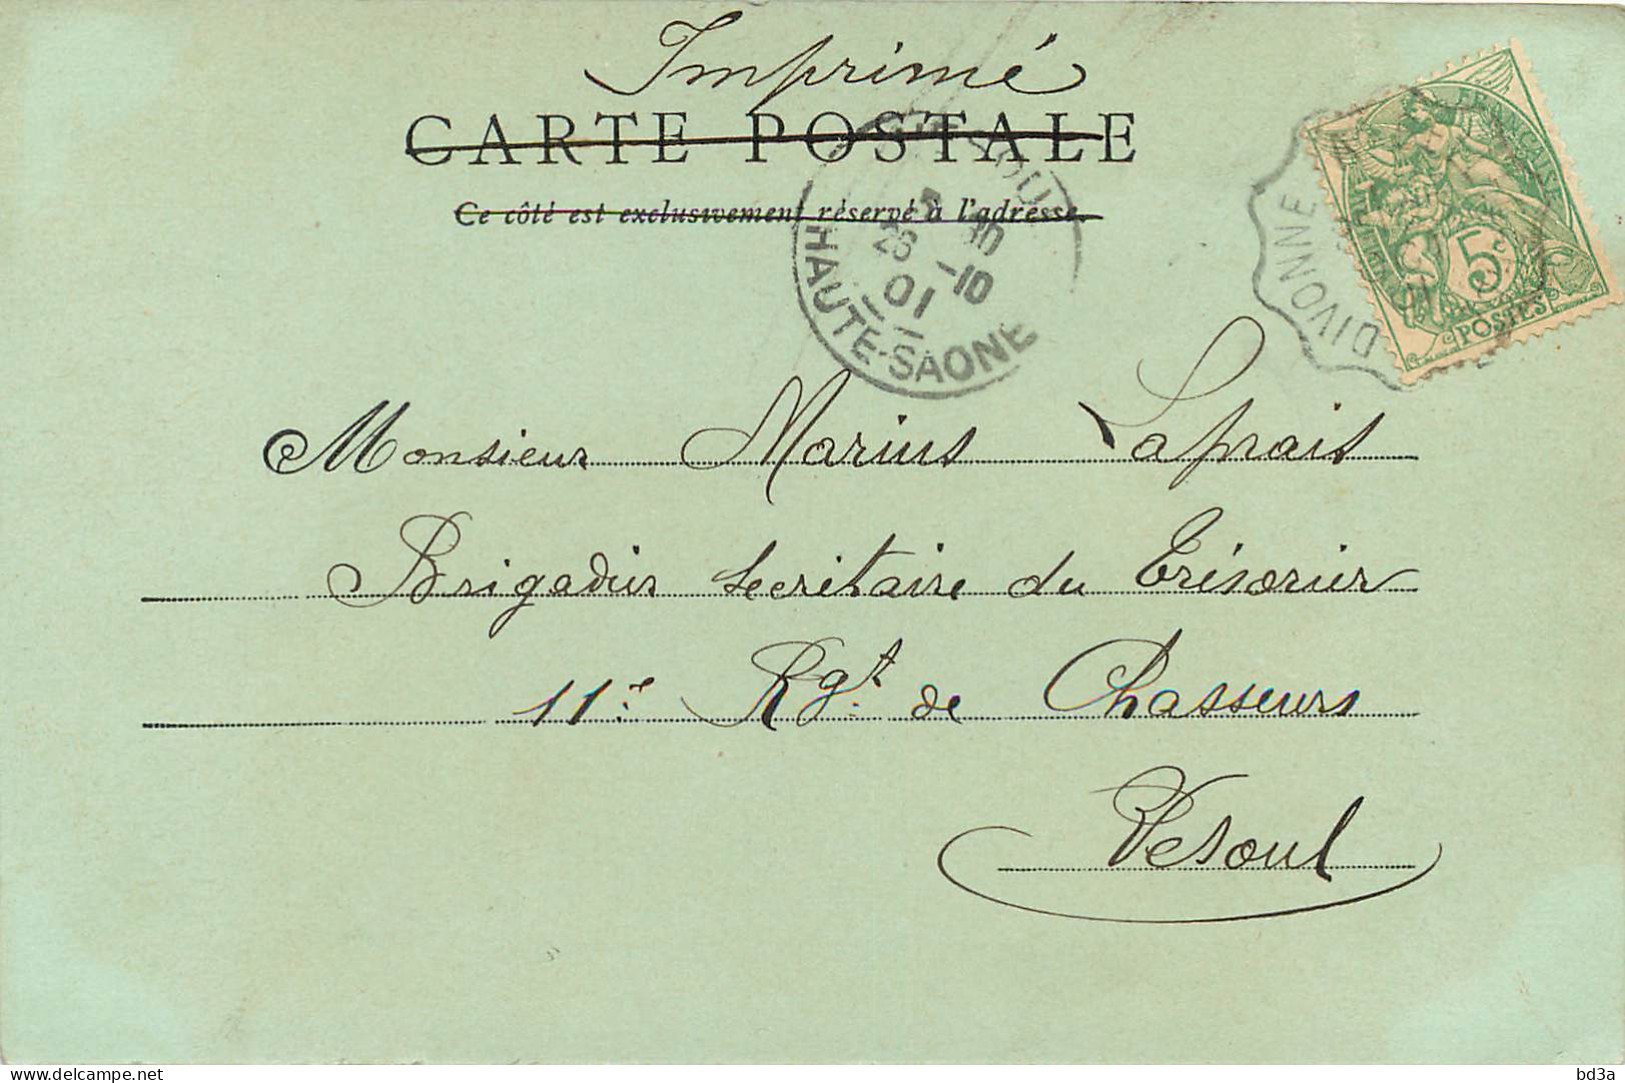 Imprimé
CARTE POSTALE
Ce côté est exclusivement réservé à l'adresse.
5 10
26 -10
01
HAUTE-SAONE
DIVONNE
FRANÇAISE
5c
POSTES
Monsieur Marius Laprais
Brigadier Secrétaire du Trésorier
11e Rgt. de Chasseurs
Vesoul
delcampe.net
bd3a